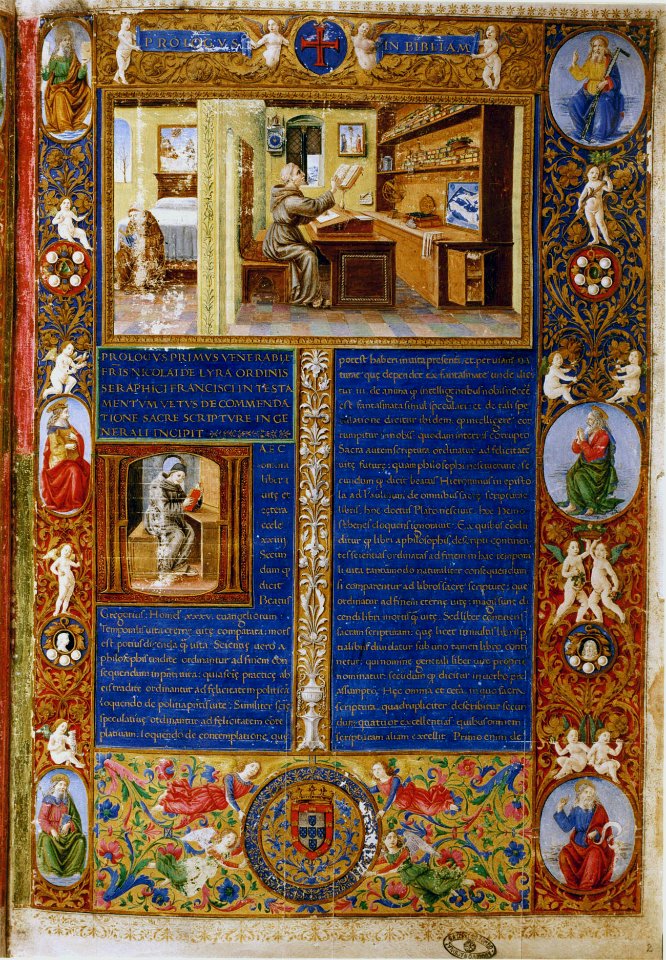 PROLOGVS IN BIBLIAM
PROLOGVS PRIMVS VENERABIL
FRIS NICOLAI DE LYRA ORDINIS
SERAPHICI FRANCISCI IN TESTA
MENTVM VETVS DE COMMENDA
TIONE SACRE SCRIPTVRE IN GE
NERALI INCIPIT
HEC
omnia
liber
uitę et
cetera
eccle
xxiiii
Secun
dum q
dicit
Beatus
Gregorius: Homel xxxv. euangeliorum:
Temporalis uita eternę uitę comparata: mors
est potius dicenda q uita. Scientię uero a
philosophis traditę ordinantur ad finem con
sequendum in pnti uita: quia scię practicę ab
eis traditę ordinantur ad felicitatem politicā
loquendo de politia pntis uitę. Similiter scię
speculatiuę ordinantur ad felicitatem cōtē
platiuam: loquendo de contemplatione, quę
potest haberi in uita presenti, et per uiam na
turae quę dependet ex fantasmate unde dici
tur III. de anima q intelligibus nobis necesse
est fantasmata simul speculari: et de tali spe
culatione dicitur ibidem q intelligere cor
rumpitur in nobis quodam interius corrupto
Sacra autem scriptura ordinatur ad felicitatē
uitę futurę: quam philosophi nescierunt: se
cundum q dicit beatus Hieronimus in episto
la ad Paulinum, de omnibus sacrę scripturae
libris, hoc doctus Plato nesciuit, hoc Demo
sthenes eloquens ignorauit: Ex quibus conclu
ditur q libri a philosophis descripti continen
tes scientias ordinatas ad finem in hac tempora
li uita tantummodo naturaliter consequendum
si comparentur ad libros sacrę scripturę: quę
ordinatur ad finem eternę uitę: magis sunt di
cendi libri mortis q uitę. Sed liber continens
sacram scripturam: quę licet in multis libris p
tialibus diuidatur sub uno tamen libro conti
netur: qui nomine generali liber uitę proprie
nominatur: secundum q dicitur in uerbo pdic
assumpto: Hęc omnia et cetera. in quo sacra
scriptura, quadrupliciter describitur secun
dum quatuor excellentias quibus omnem
scripturam aliam excellit. Primo enim de
2